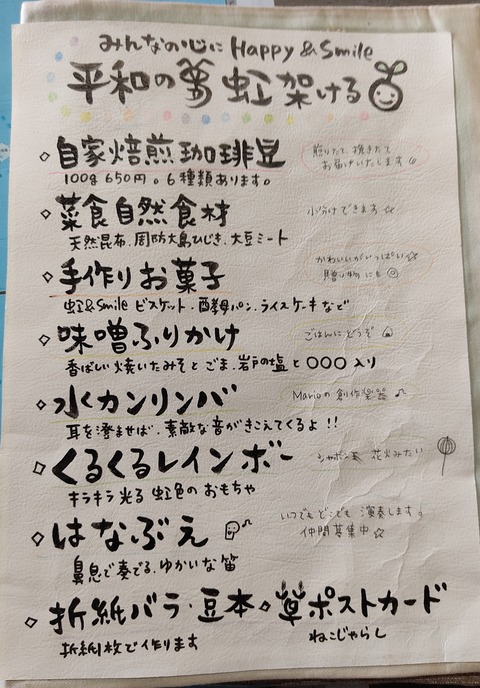 みんなの心に Happy & Smile
平和の夢 虹 架ける
◇ 自家焙煎珈琲豆
煎りたて、挽きたて
お届けいたします
100g 650円。6種類あります。
◇ 菜食自然食材
小分けできます☆
天然昆布、周防大島ひじき、大豆ミート
◇ 手作りお菓子
かわいいがいっぱい
贈り物にも◎
虹&Smile ビスケット、酵母パン、ライスケーキなど
◇ 味噌ふりかけ
ごはんにどうぞ
香ばしい焼いたみそとごま、岩戸の塩と〇〇〇入り
◇ 水カンリンバ
Marioの創作楽器♪
耳を澄ませば、素敵な音がきこえてくるよ!!
◇ くるくるレインボー
シャボン玉 花火みたい
キラキラ光る虹色のおもちゃ
◇ はなぶえ
いつでもどこでも演奏します。
仲間募集中☆
鼻息で奏でる、ゆかいな笛
◇ 折紙バラ・豆本◇草ポストカード
折紙1枚で作ります
ねこじゃらし